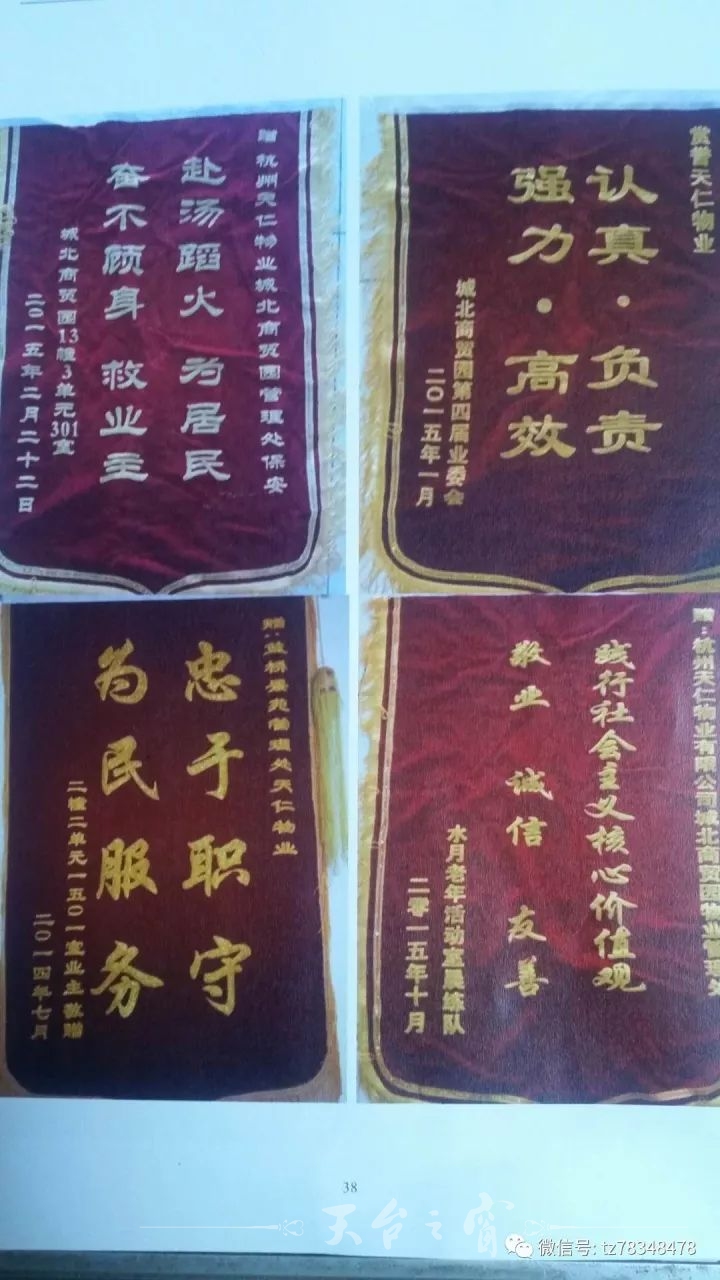 赠杭州天仁物业城北商贸园管理处保安
赴汤蹈火 为居民
奋不顾身 救业主
城北商贸园13幢3单元301室
二〇一五年二月二十二日
赏誉天仁物业
认真·负责
强力·高效
城北商贸园第四届业委会
二〇一五年一月
赠:蓝桥景苑管理处天仁物业
忠于职守
为民服务
二幢二单元一五〇一室业主敬赠
二〇一四年七月
赠:杭州天仁物业有限公司城北商贸园物业管理处
践行社会主义核心价值观
敬业 诚信 友善
水月老年活动室晨练队
二零一五年十月
38
天台之窗
微信号: tz78348478